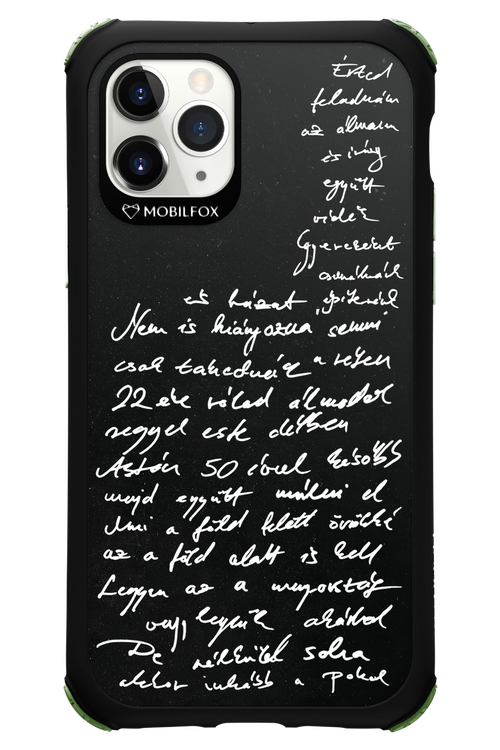 MOBILFOX
Érted
feladnám
az álmaim
és így
együtt
vidék
Gyereseket
csinálnánk
és házat építenénk
Nem is hiányozna semmi
csak takednár a réten
22 éve rólad álmodok
reggel este délben
Aztán 50 évvel később
majd együtt múlni el
Ami a föld felett örökké
az a föld alatt is kell
Legyen az a mennyország
vagy legyünk akárhol
De nélküled soha
akkor inkább a pokol